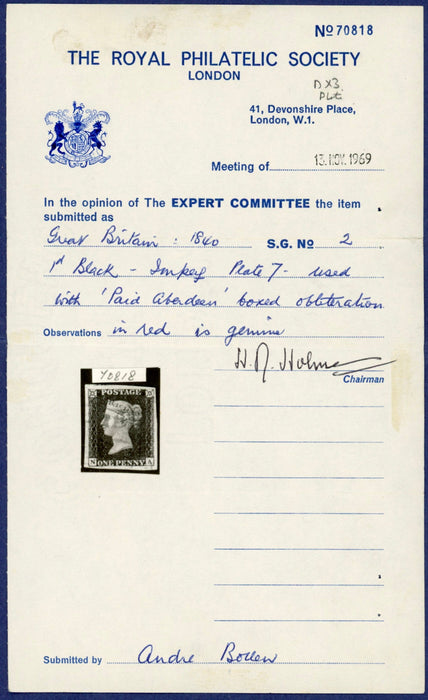 No 70818
THE ROYAL PHILATELIC SOCIETY
LONDON
D X3
Plt
41, Devonshire Place,
London, W.1.
Meeting of 13. NOV. 1969
In the opinion of The EXPERT COMMITTEE the item
submitted as
Great Britain : 1840 S.G. No 2
1d Black - Imperf Plate 7 - used
with 'Paid Aberdeen' boxed obliteration
Observations in red is genuine
Chairman
70818
POSTAGE
N ONE PENNY A
Submitted by Andre Bollen